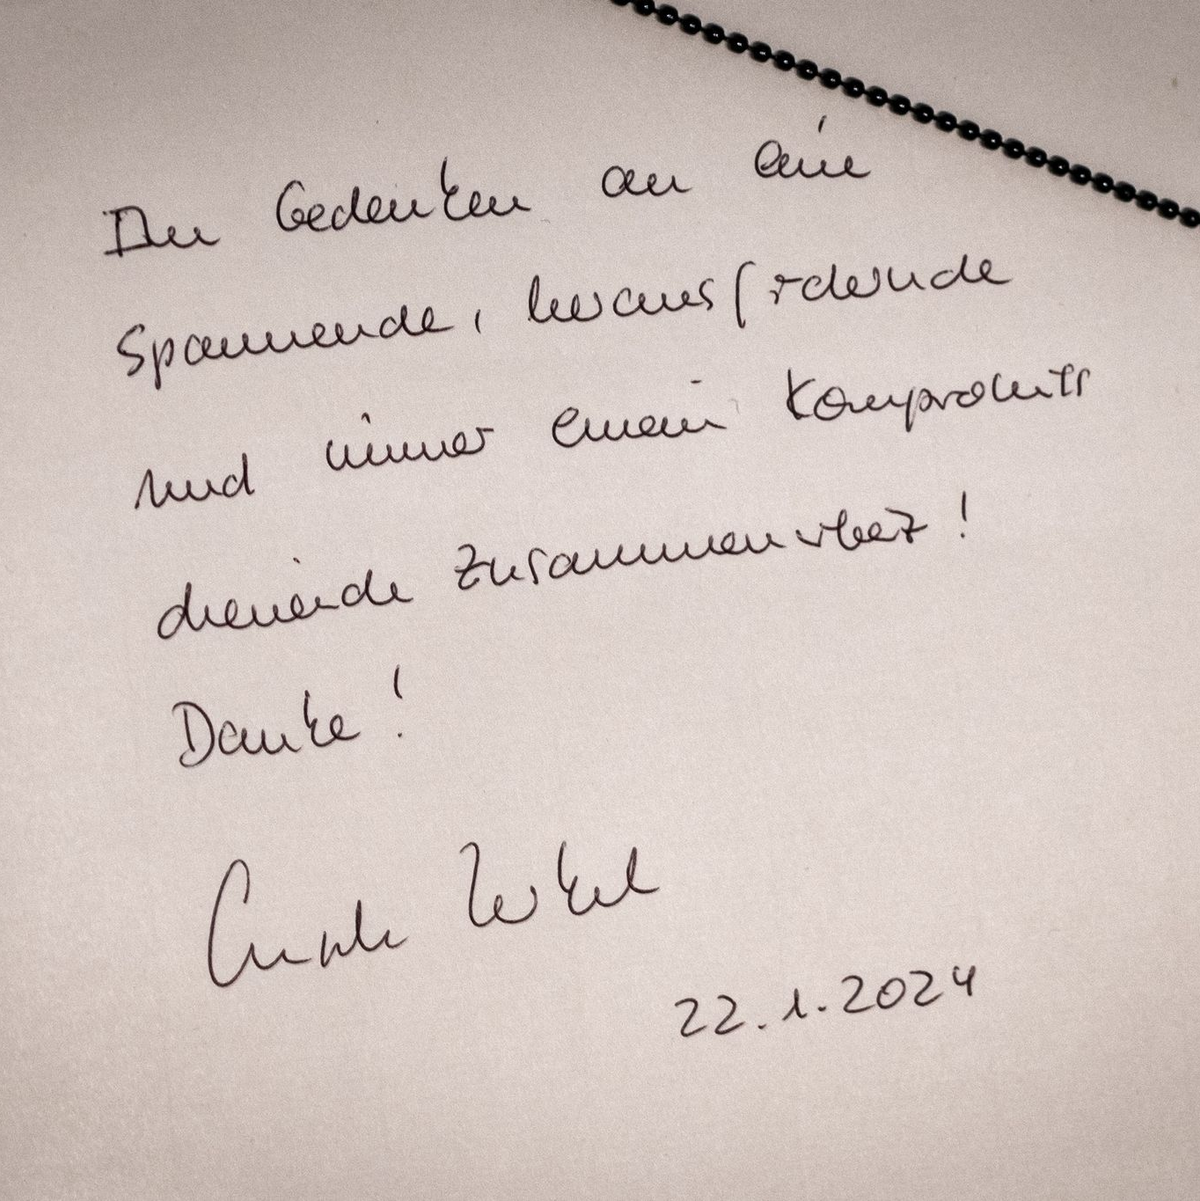 Im Gedenken an eine
spannende, herausfordernde
und immer einem Kompromiss
dienende Zusammenarbeit!
Danke!
22.1.2024